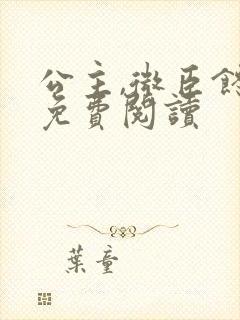 公主,微臣
免費閱讀
葉童